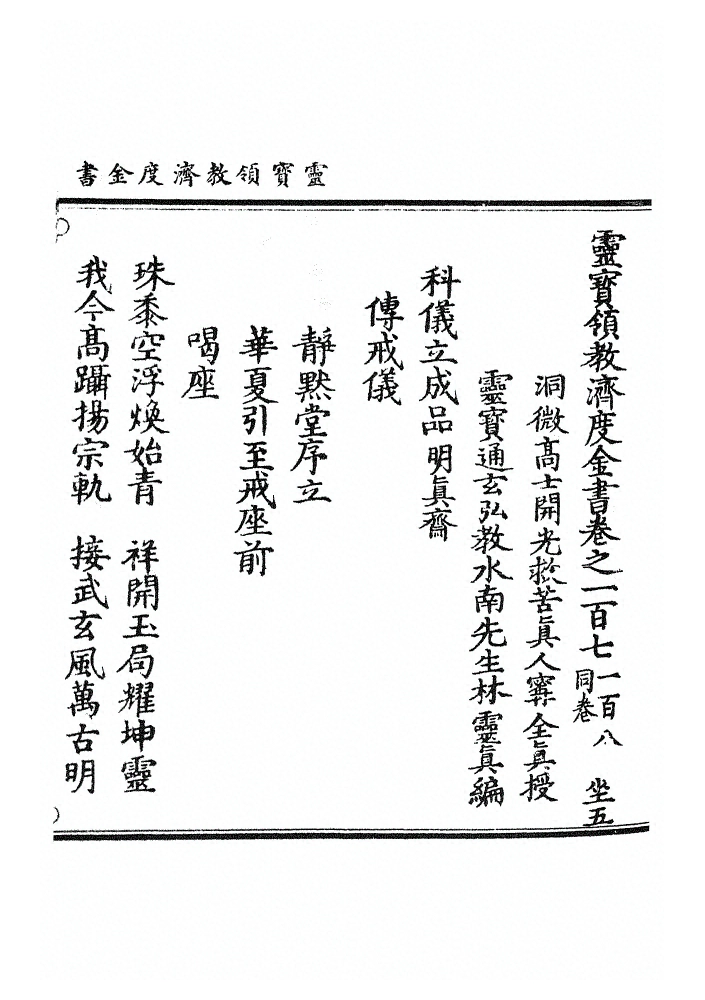 靈寶領教濟度金書
靈寶領教濟度金書卷之一百七 一百八同卷 坐五
洞微高士開光救苦眞人寗全眞授
靈寶通玄弘教水南先生林靈眞編
科儀立成品 明眞齋
傳戒儀
靜默堂序立
華夏引至戒座前
喝座
珠黍空浮煥始青 祥開玉局耀坤靈
我今髙躡揚宗軌 接武玄風萬古明